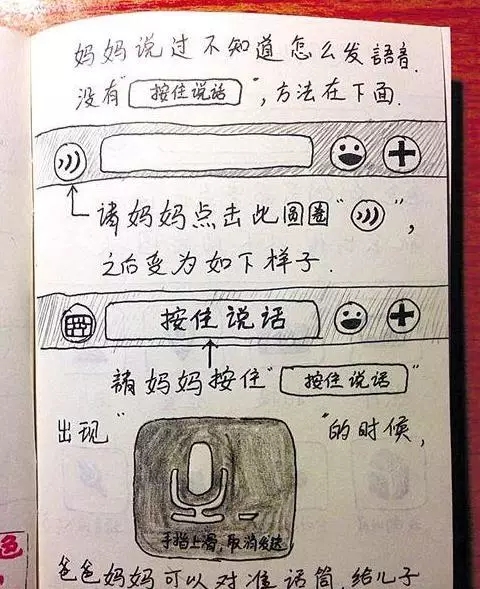 妈妈说过不知道怎么发語音.
没有"按住说话",方法在下面.
请妈妈点击此圆圈" ",
之后变为如下样子.
按住说话
請妈妈按住"按住说话"
出现" "的时候,
手指上滑,取消发送
爸爸妈妈可以对准话筒,给儿子
色